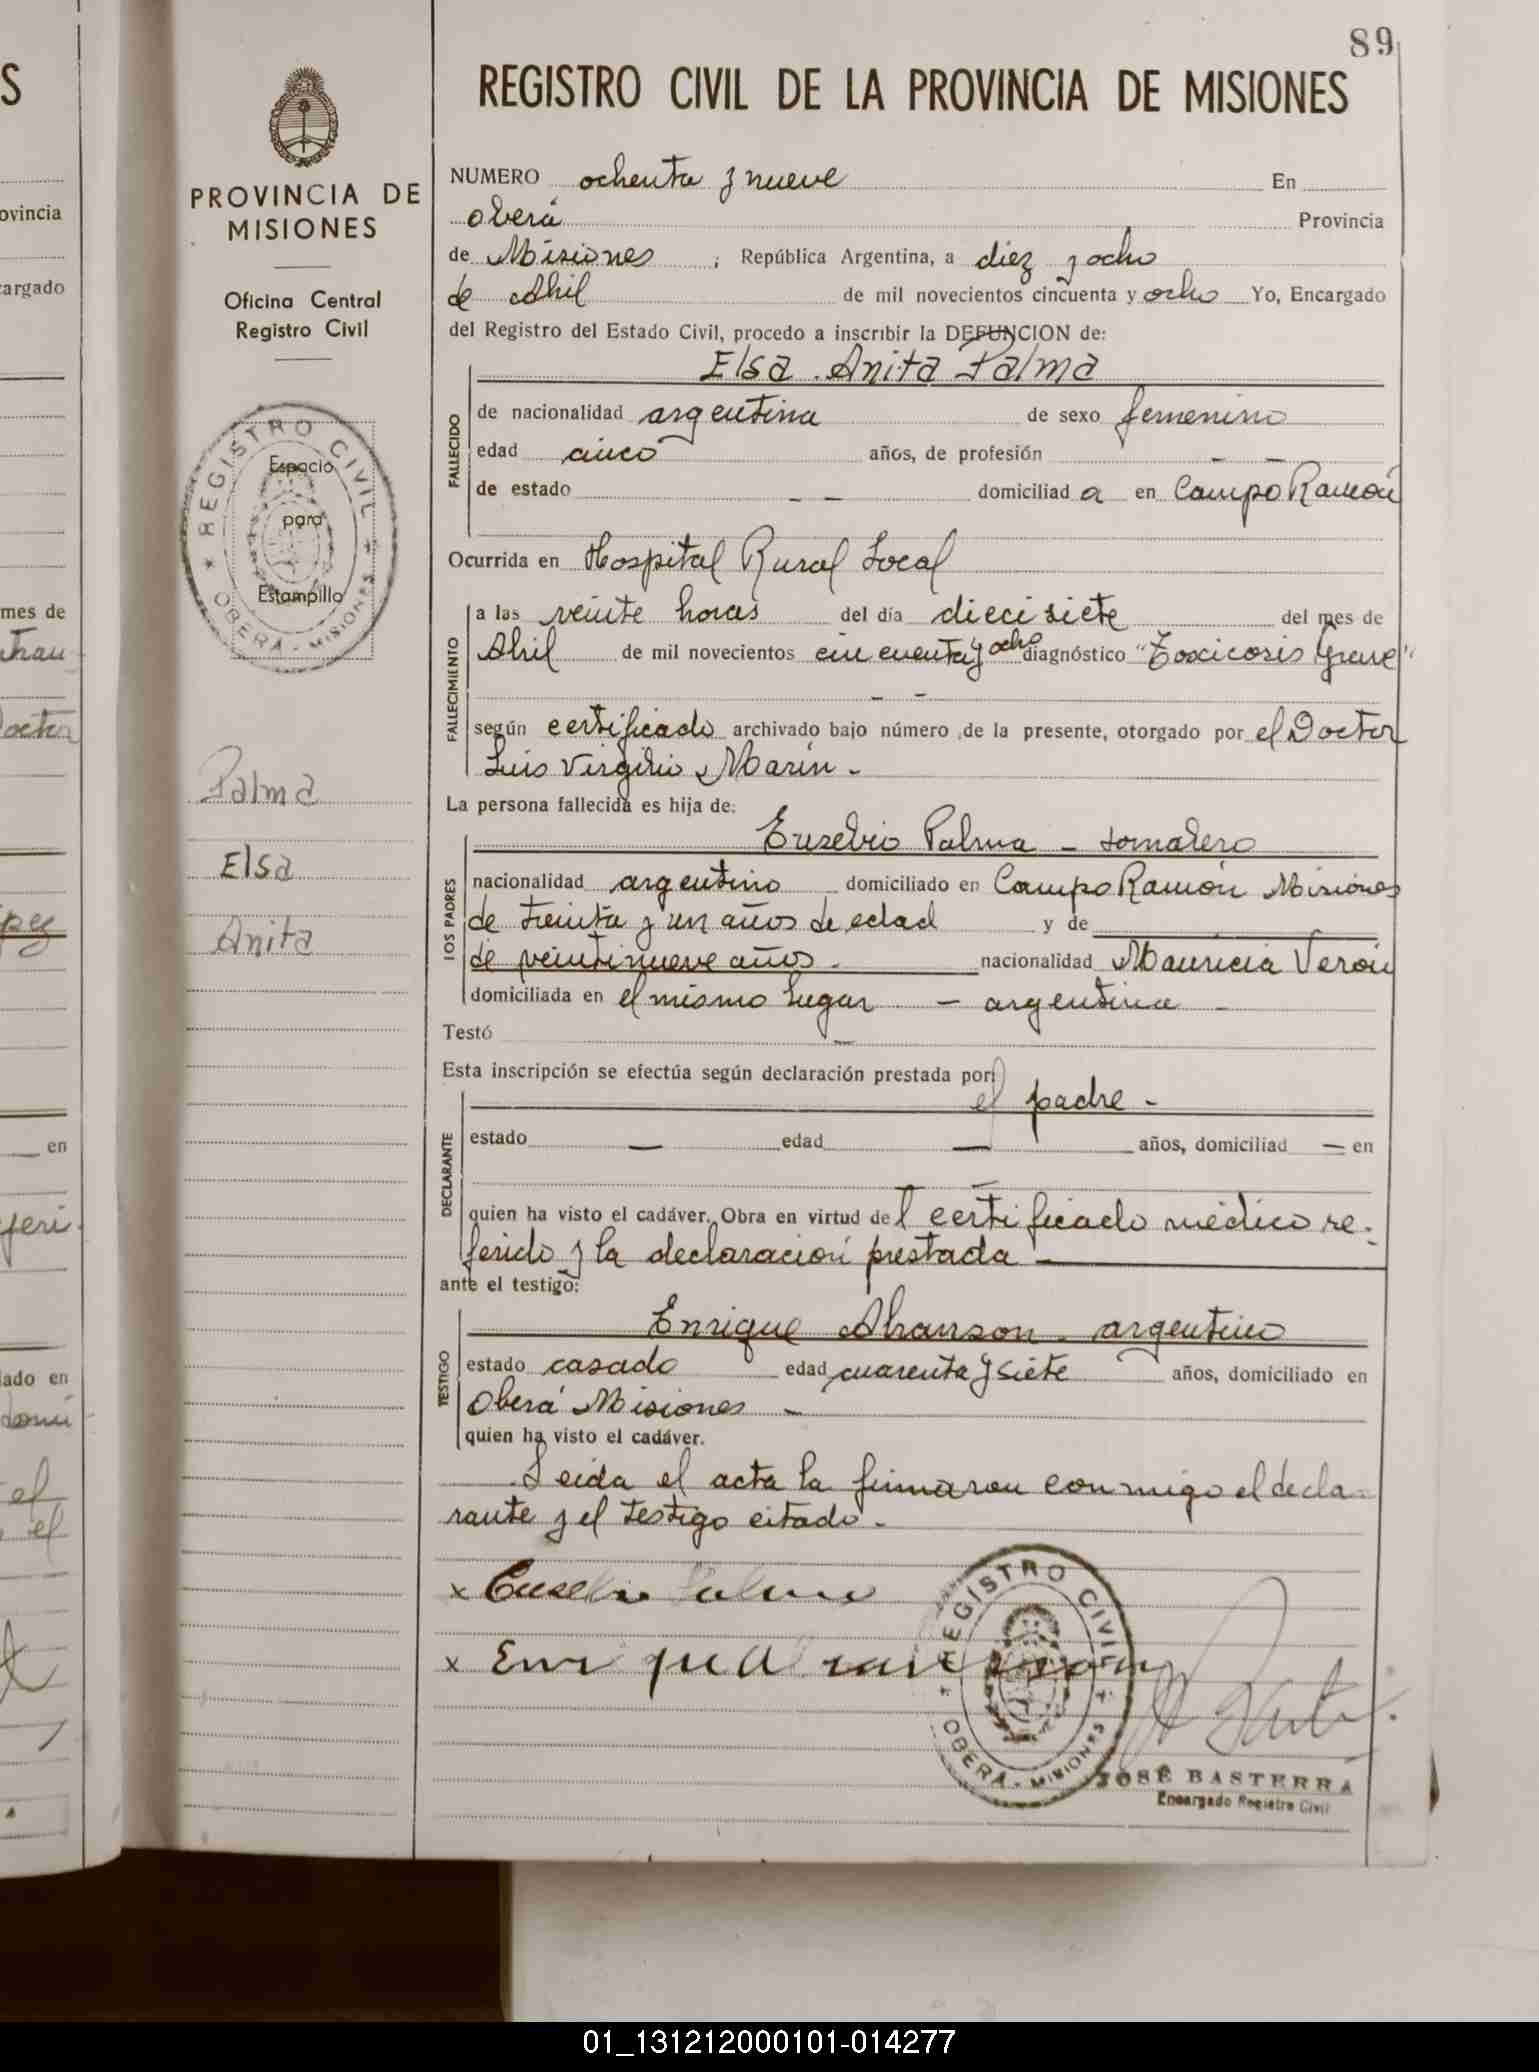 89
REGISTRO CIVIL DE LA PROVINCIA DE MISIONES
PROVINCIA DE
MISIONES
Oficina Central
Registro Civil
REGISTRO CIVIL
OBERÁ - MISIONES
Espacio
para
Estampilla
Palma
Elsa
Anita
NUMERO ochenta y nueve En
oberá Provincia
de Misiones ; República Argentina, a diez y ocho
de Abril de mil novecientos cincuenta y ocho Yo, Encargado
del Registro del Estado Civil, procedo a inscribir la DEFUNCION de:
Elsa Anita Palma
FALLECIDO
de nacionalidad argentina de sexo femenino
edad cinco años, de profesión — —
de estado — — domiciliad a en Campo Ramón
Ocurrida en Hospital Rural Local
FALLECIMIENTO
a las veinte horas del día diecisiete del mes de
Abril de mil novecientos cincuenta y ocho diagnóstico "Toxicosis Grave"
— —
según certificado archivado bajo número de la presente, otorgado por el Doctor
Luis Virgilio Marin -
La persona fallecida es hija de:
LOS PADRES
Eusebio Palma - jornalero
nacionalidad argentino domiciliado en Campo Ramón Misiones
de treinta y un años de edad y de
de veintinueve años - nacionalidad Mauricia Verón
domiciliada en el mismo lugar - argentina -
Testó —
Esta inscripción se efectúa según declaración prestada por:
el padre -
DECLARANTE
estado — edad — años, domiciliad — en
—
quien ha visto el cadáver. Obra en virtud del certificado médico re-
ferido y la declaración prestada —
ante el testigo:
TESTIGO
Enrique Abranson - argentino
estado casado edad cuarenta y siete años, domiciliado en
Oberá Misiones -
quien ha visto el cadáver.
Leida el acta la firmaron conmigo el decla-
rante y el testigo citado -
x Eusebio Palma
x Enrique
REGISTRO CIVIL
OBERÁ - MISIONES
JOSÉ BASTERRA
Encargado Registro Civil
01_131212000101-014277